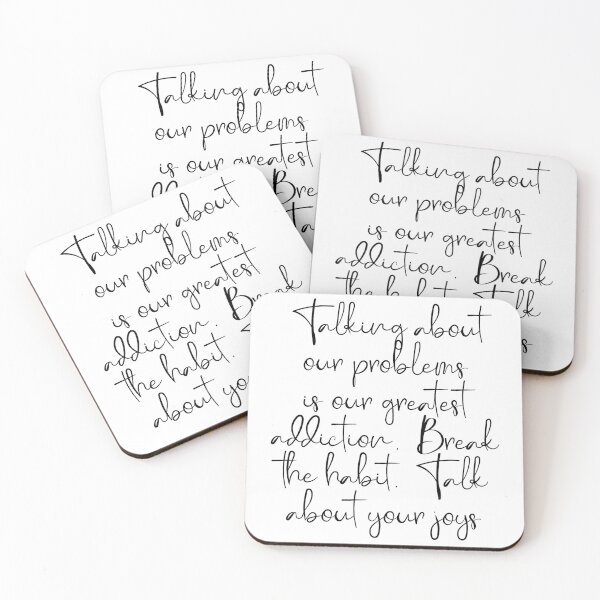 Talking about
our problems
is our greatest
Talking about
our problems
is our greatest
addiction. Break
the habit. Talk
Talking about
our problems
is our greatest
addiction. Break
the habit.
about your
Talking about
our problems
is our greatest
addiction. Break
the habit. Talk
about your joys